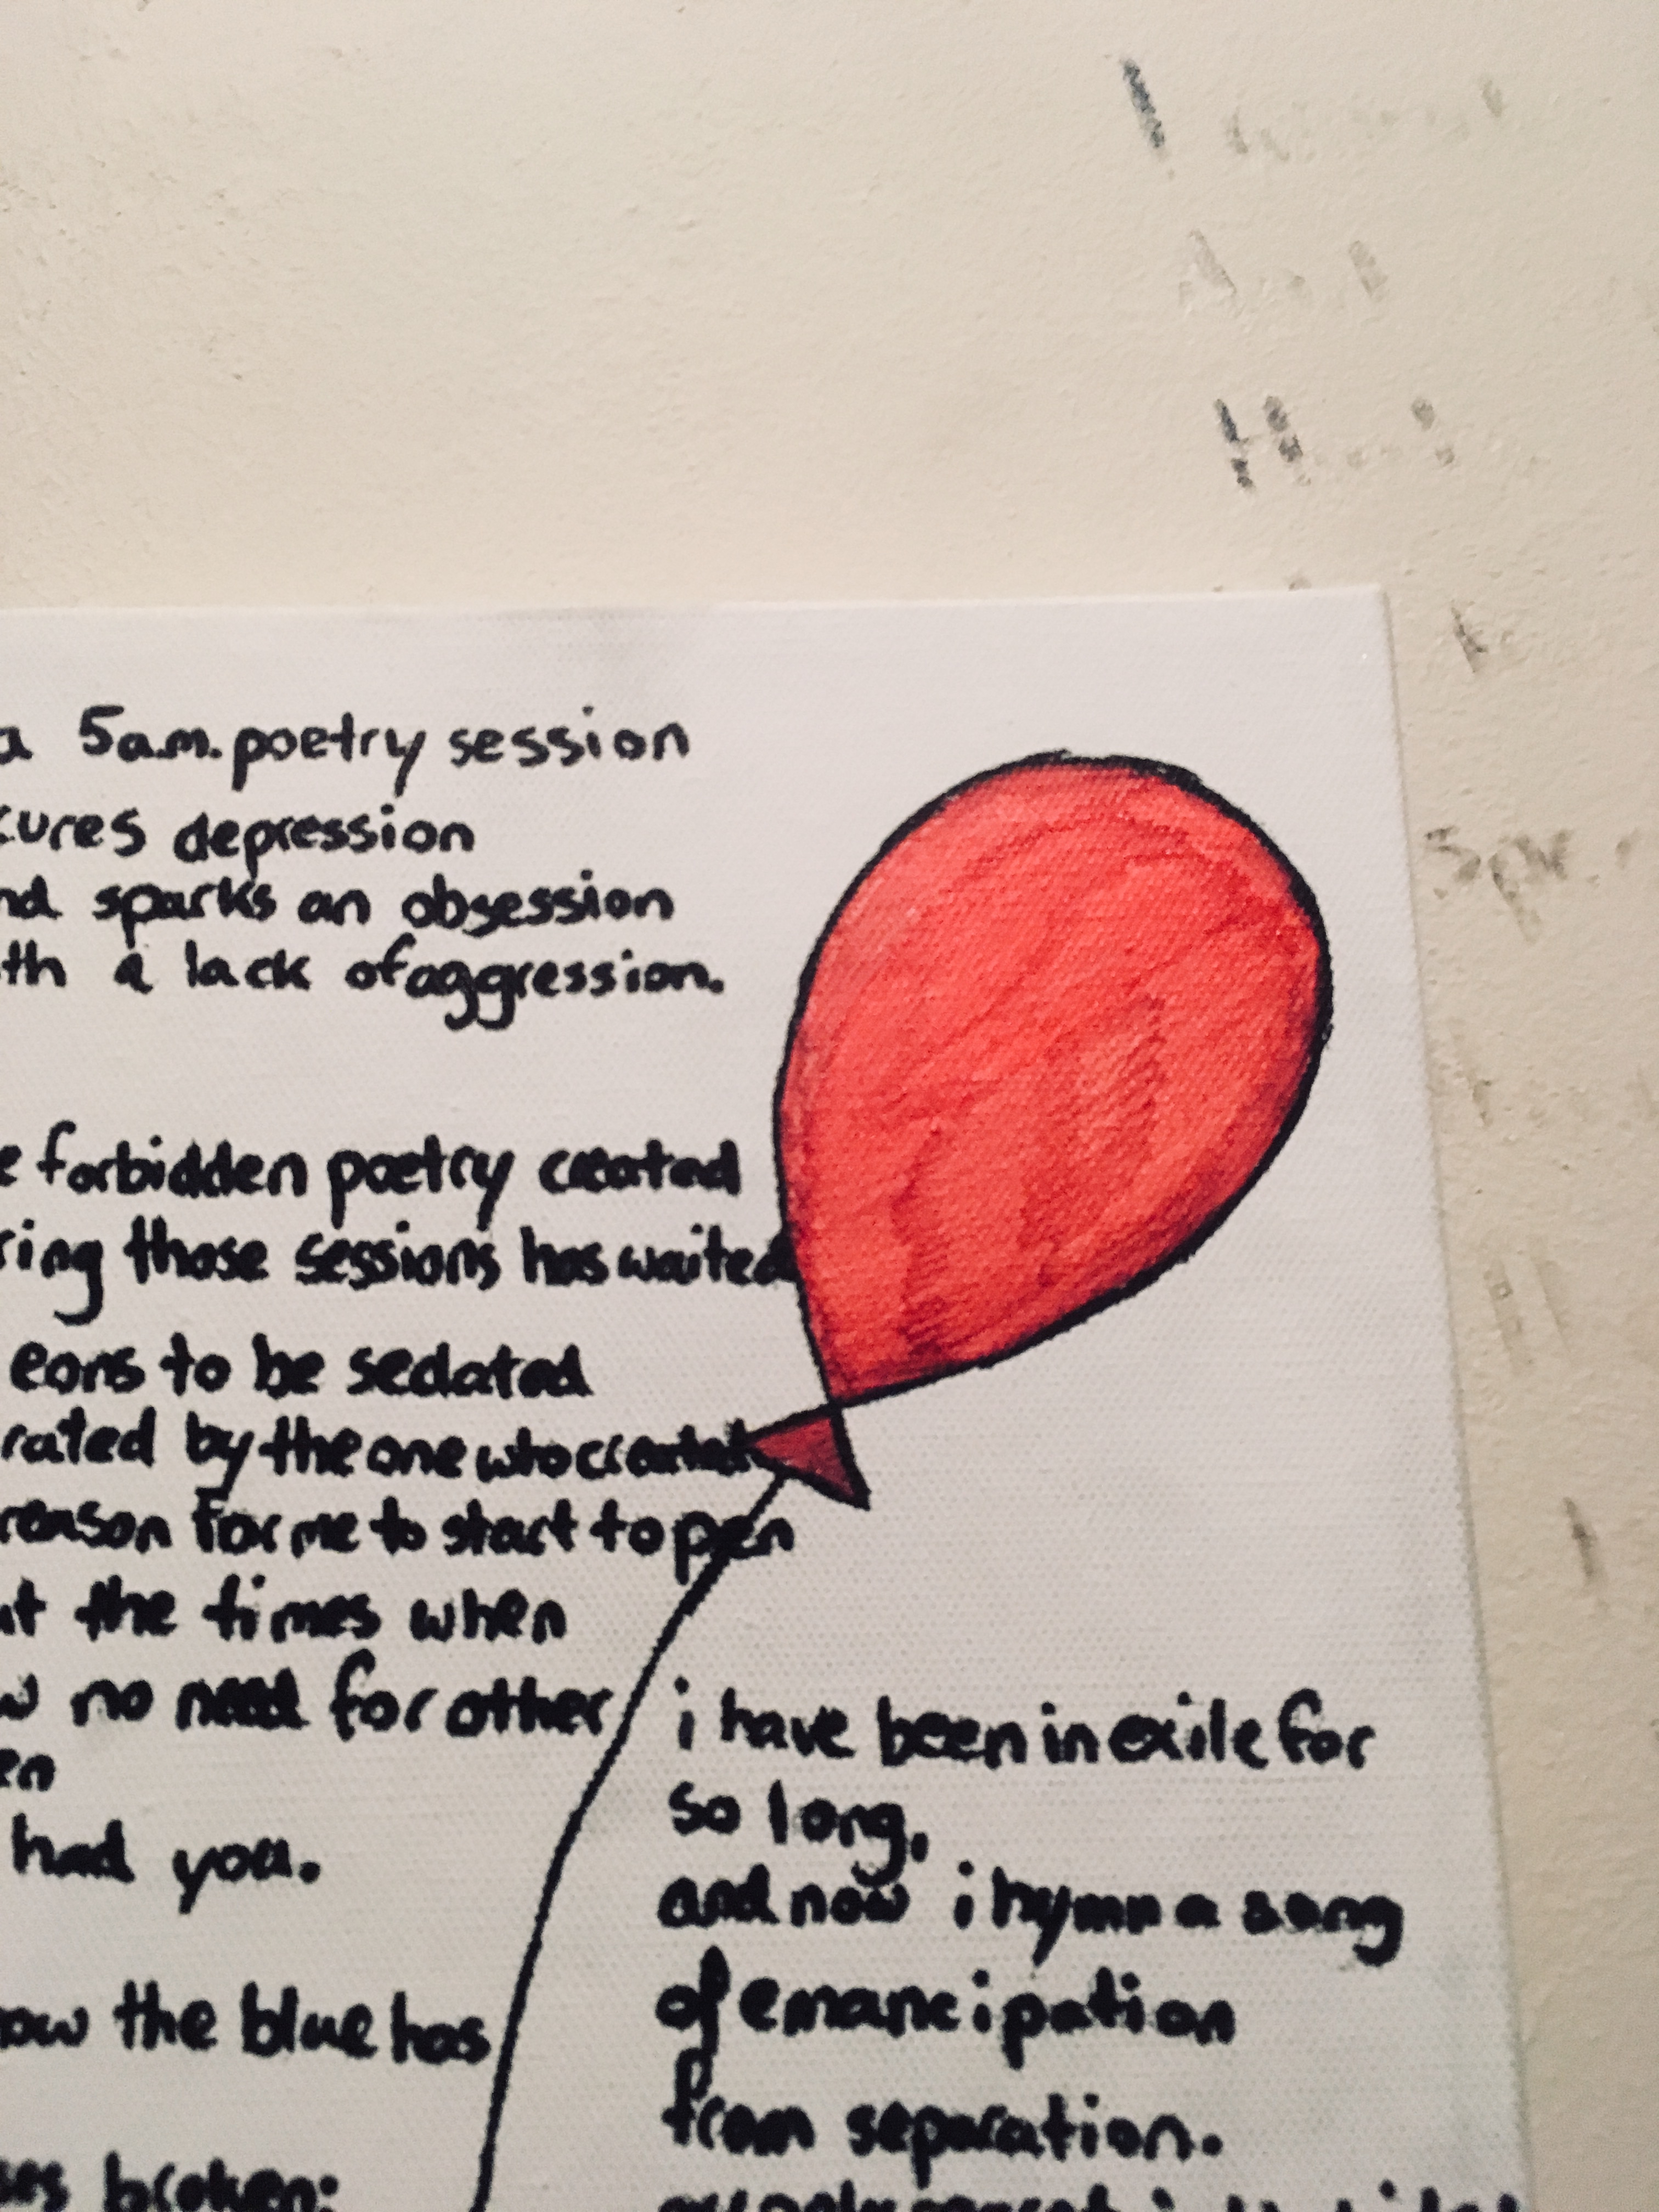 a 5a.m. poetry session
cures depression
nd sparks an obsession
th a lack of aggression.
e forbidden poetry created
ring those sessions has waited
eons to be sedated
rated by the one who created
reason for me to start to pen
the times when
w no need for other
en
had you.
i have been in exile for
so long,
and now i hymn a song
of emancipation
from separation.
ow the blue has
broken: